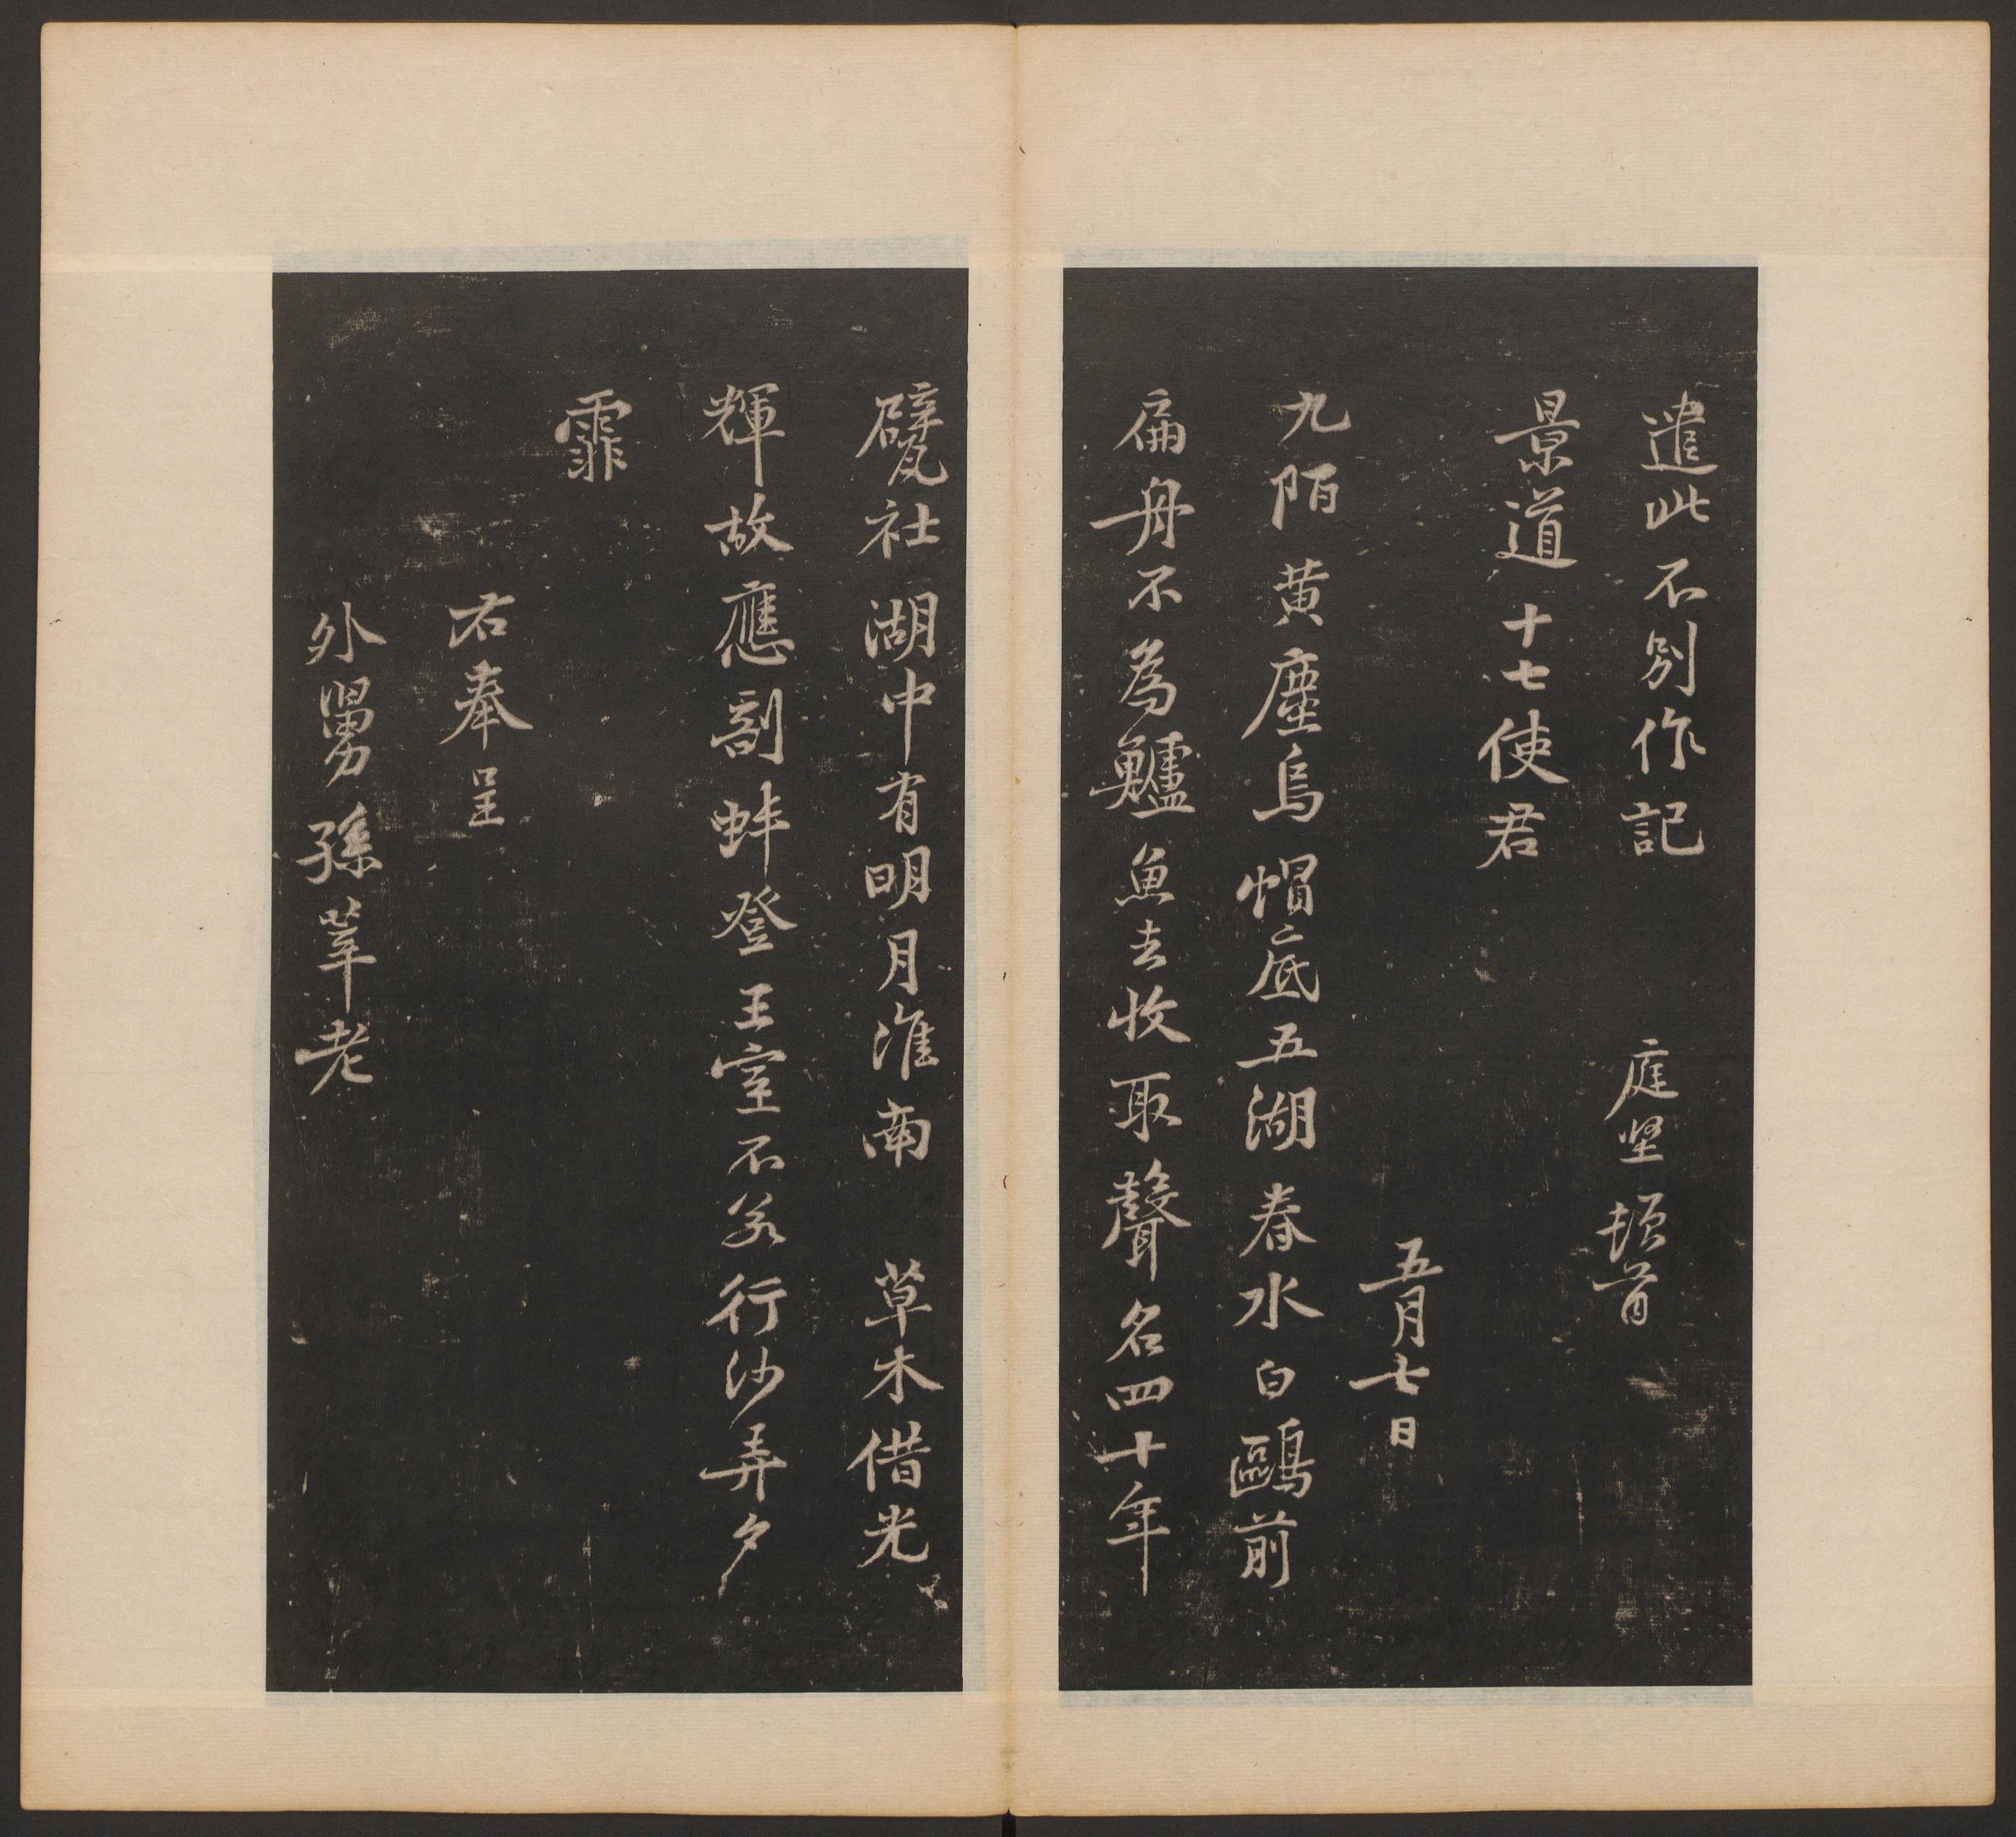 遣此不别作記 庭堅頓首
景道十七使君
五月七日
九陌黄塵烏帽底五湖春水白鷗前
扁舟不為鱸魚去收取聲名四十年
甓社湖中有明月淮南 草木借光
輝故應剖蚌登王室不若行沙弄夕
霏
右奉呈
外舅孫莘老